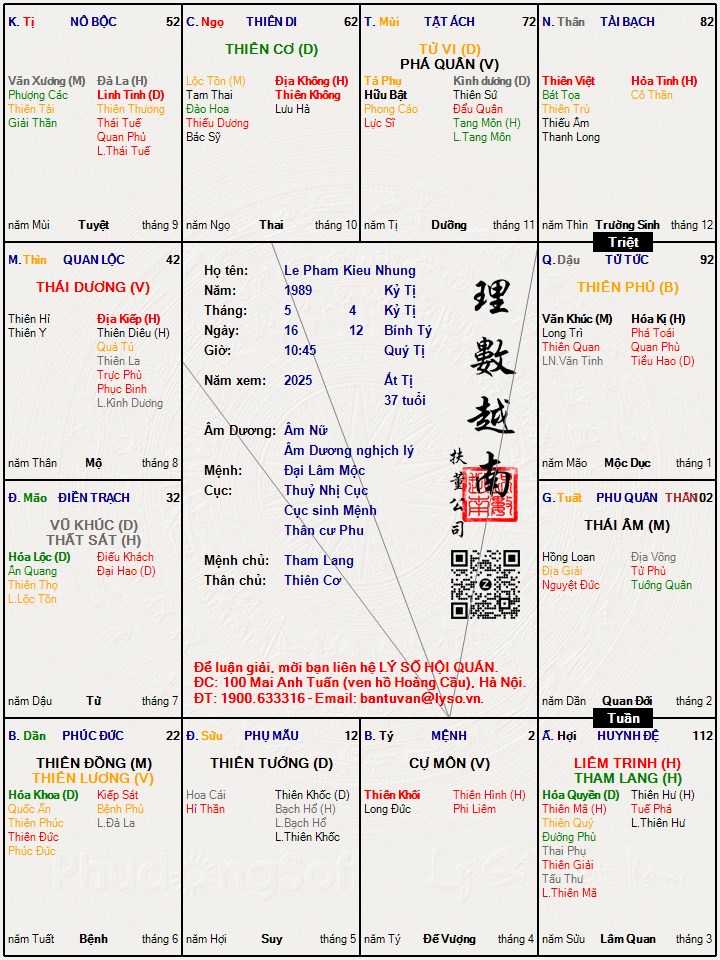 K. Tị NÔ BỘC 52
Văn Xương (M)
Phượng Các
Thiên Tài
Giải Thần
Đà La (H)
Linh Tinh (D)
Thiên Thương
Thái Tuế
Quan Phủ
L.Thái Tuế
năm Mùi Tuyệt tháng 9
C. Ngọ THIÊN DI 62
THIÊN CƠ (D)
Lộc Tồn (M)
Tam Thai
Đào Hoa
Thiếu Dương
Bác Sỹ
Địa Không (H)
Thiên Không
Lưu Hà
năm Ngọ Thai tháng 10
T. Mùi TẬT ÁCH 72
TỬ VI (D)
PHÁ QUÂN (V)
Tả Phụ
Hữu Bật
Phong Cáo
Lực Sĩ
Kình dương (D)
Thiên Sứ
Đẩu Quân
Tang Môn (H)
L.Tang Môn
năm Tị Dưỡng tháng 11
N. Thân TÀI BẠCH 82
Thiên Việt
Bát Tọa
Thiên Trù
Thiếu Âm
Thanh Long
Hỏa Tinh (H)
Cô Thần
năm Thìn Trường Sinh tháng 12
Triệt
M. Thìn QUAN LỘC 42
THÁI DƯƠNG (V)
Thiên Hỉ
Thiên Y
Địa Kiếp (H)
Thiên Diêu (H)
Quả Tú
Thiên La
Trực Phù
Phục Binh
L.Kình Dương
năm Thân Mộ tháng 8
Họ tên: Le Pham Kieu Nhung
Năm: 1989 Kỷ Tị
Tháng: 5 4 Kỷ Tị
Ngày: 16 12 Bính Tý
Giờ: 10:45 Quý Tị
Năm xem: 2025 Ất Tị
37 tuổi
Âm Dương: Âm Nữ
Âm Dương nghịch lý
Mệnh: Đại Lâm Mộc
Cục: Thuỷ Nhị Cục
Cục sinh Mệnh
Thân cư Phu
Mệnh chủ: Tham Lang
Thân chủ: Thiên Cơ
理數越南
扶董公司
Z
Để luận giải, mời bạn liên hệ LÝ SỐ HỘI QUÁN.
ĐC: 100 Mai Anh Tuấn (ven hồ Hoàng Cầu), Hà Nội.
ĐT: 1900.633316 - Email: bantuvan@lyso.vn.
Q. Dậu TỬ TỨC 92
THIÊN PHỦ (B)
Văn Khúc (M)
Long Trì
Thiên Quan
LN.Văn Tinh
Hóa Kị (H)
Phá Toái
Quan Phù
Tiểu Hao (D)
năm Mão Mộc Dục tháng 1
Đ. Mão ĐIỀN TRẠCH 32
VŨ KHÚC (D)
THẤT SÁT (H)
Hóa Lộc (D)
Ân Quang
Thiên Thọ
L.Lộc Tồn
Điếu Khách
Đại Hao (D)
năm Dậu Tử tháng 7
G. Tuất PHU QUÂN THÂN 102
THÁI ÂM (M)
Hồng Loan
Địa Giải
Nguyệt Đức
Địa Võng
Tử Phù
Tướng Quân
năm Dần Quan Đới tháng 2
Tuần
B. Dần PHÚC ĐỨC 22
THIÊN ĐỒNG (M)
THIÊN LƯƠNG (V)
Hóa Khoa (D)
Quốc Ấn
Thiên Phúc
Thiên Đức
Phúc Đức
Kiếp Sát
Bệnh Phù
L.Đà La
năm Tuất Bệnh tháng 6
Đ. Sửu PHỤ MẪU 12
THIÊN TƯỚNG (D)
Hoa Cái
Hỉ Thần
Thiên Khốc (D)
Bạch Hổ (H)
L.Bạch Hổ
L.Thiên Khốc
năm Hợi Suy tháng 5
B. Tý MỆNH 2
CỰ MÔN (V)
Thiên Khôi
Long Đức
Thiên Hình (H)
Phi Liêm
năm Tý Đế Vượng tháng 4
Ấ. Hợi HUYNH ĐỆ 112
LIÊM TRINH (H)
THAM LANG (H)
Hóa Quyền (D)
Thiên Mã (H)
Thiên Quý
Đường Phù
Thai Phụ
Thiên Giải
Tấu Thư
L.Thiên Mã
Thiên Hư (H)
Tuế Phá
L.Thiên Hư
năm Sửu Lâm Quan tháng 3